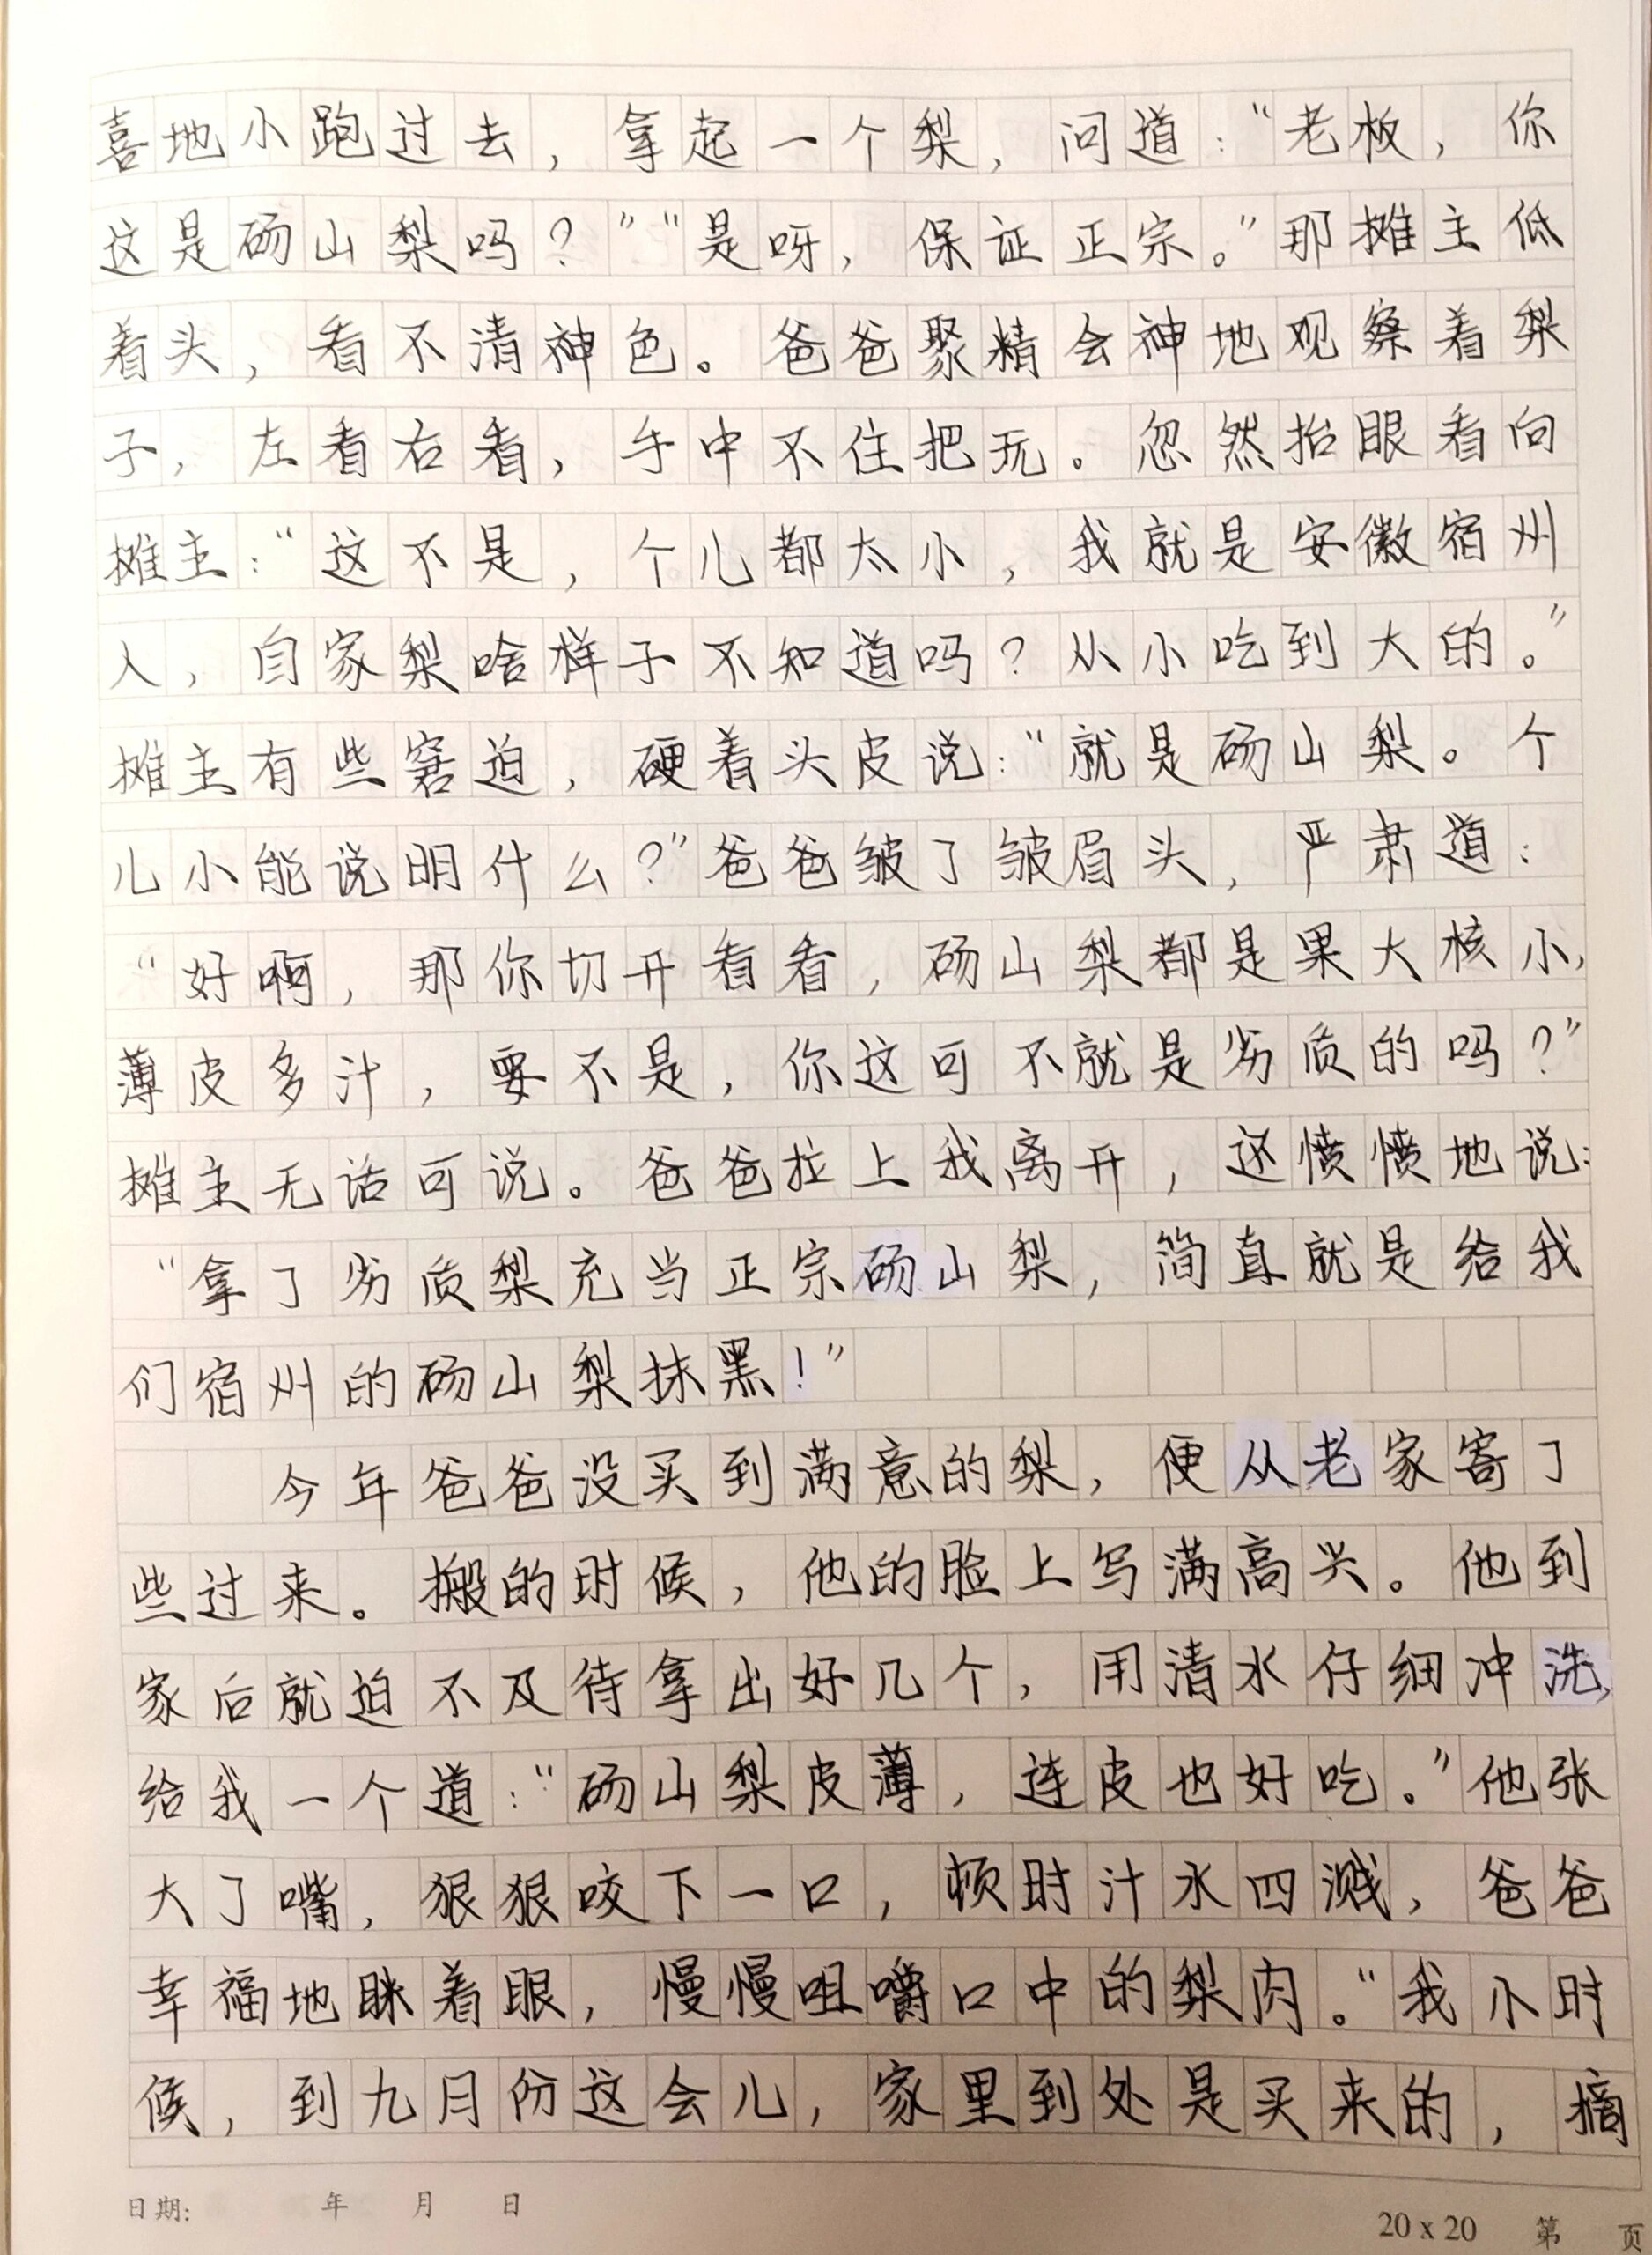 喜地小跑过去，拿起一个梨，问道：“老板，你
这是砀山梨吗？”“是呀，保证正宗。”那摊主低
着头，看不清神色。爸爸聚精会神地观察着梨
子，左看右看，手中不住把玩。忽然抬眼看向
摊主：“这不是，个儿都太小，我就是安徽宿州
人，自家梨啥样子不知道吗？从小吃到大的。”
摊主有些窘迫，硬着头皮说：“就是砀山梨。个
儿小能说明什么？”爸爸皱了皱眉头，严肃道：
“好啊，那你切开看看，砀山梨都是果大核小，
薄皮多汁，要不是，你这可不就是劣质的吗？”
摊主无话可说。爸爸拉上我离开，还愤愤地说：
“拿了劣质梨充当正宗砀山梨，简直就是给我
们宿州的砀山梨抹黑！”
今年爸爸没买到满意的梨，便从老家寄了
些过来。搬的时候，他的脸上写满高兴。他到
家后就迫不及待拿出好几个，用清水仔细冲洗，
给我一个道：“砀山梨皮薄，连皮也好吃。”他张
大了嘴，狠狠咬下一口，顿时汁水四溅，爸爸
幸福地眯着眼，慢慢咀嚼口中的梨肉。“我小时
候，到九月份这会儿，家里到处是买来的，摘
日期： 年 月 日
20 x 20 第 页